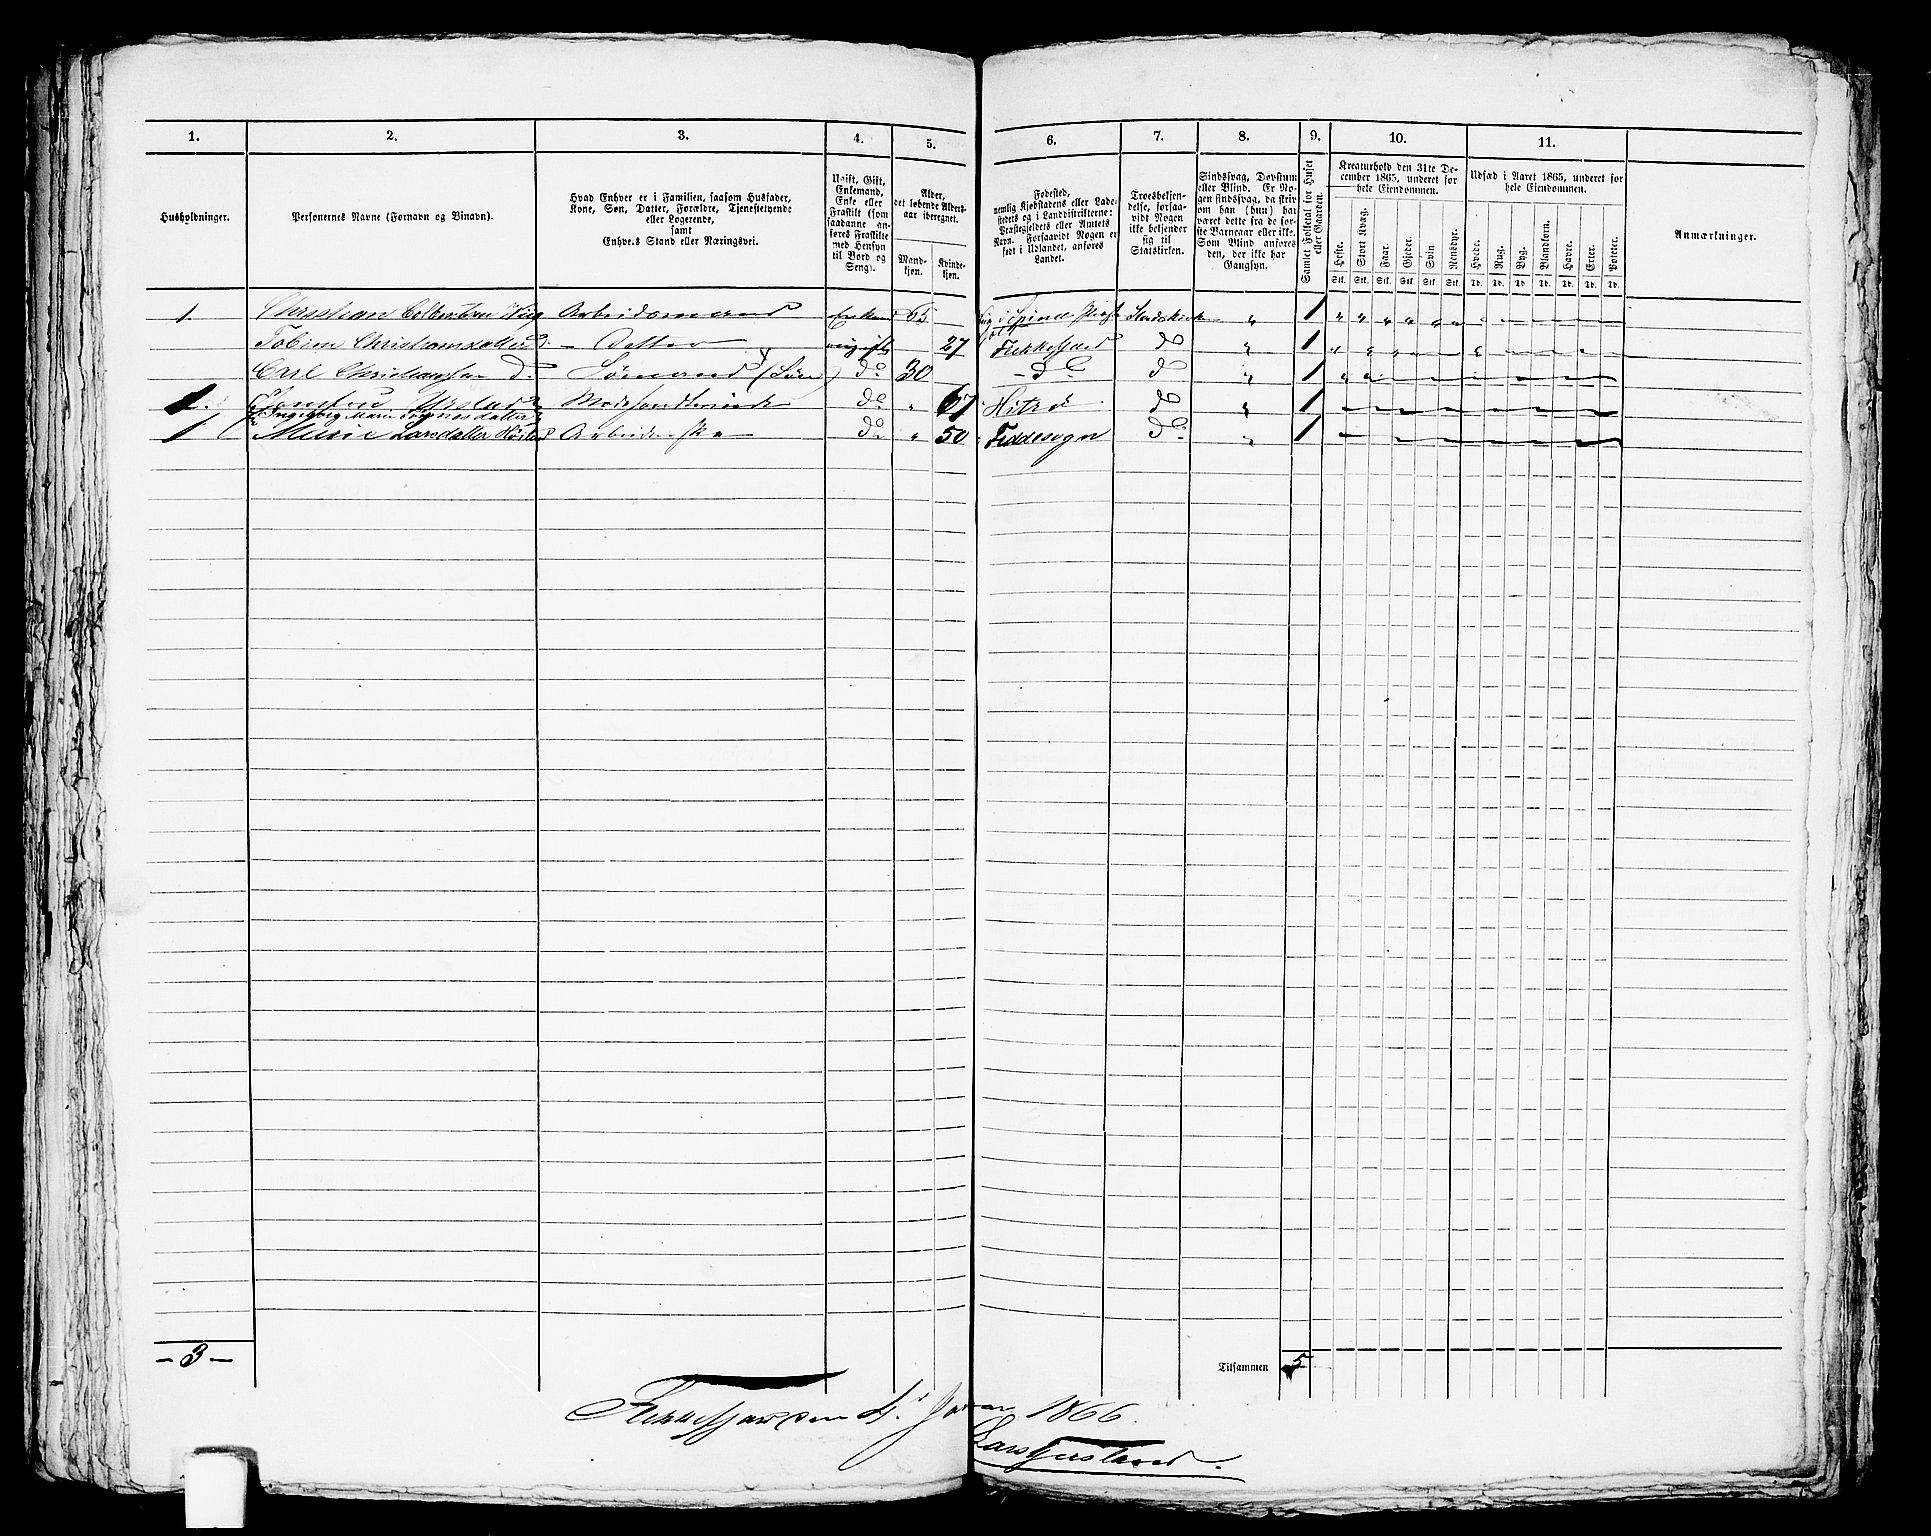 1. 2. 3. 4. 5. 6. 7. 8. 9. 10. 11.
Husholdninger.
Personernes Navne (Fornavn og Binavn).
Hvad Enhver er i Familien, saasom Husfader,
Kone, Søn, Datter, Forældre, Tjenestetyende
eller Logerende,
samt
Enhvers Stand eller Næringsvei.
Ugift, Gift,
Enkemand,
Enke eller
Fraskilt (som
saadanne an-
føres Fraskilte
med Hensyn
til Bord og
Seng).
Alder,
det løbende Alders-
aar iberegnet.
Mand-
kjøn.
Kvinde-
kjøn.
Fødested,
nemlig Kjøbstadens eller Lade-
stedets og i Landdistrikterne:
Præstegjeldets eller Amtets
Navn. Forsaavidt Nogen er
født i Udlandet, anføres
Landet.
Troesbekjen-
delse, forsaa-
vidt Nogen
ikke bekjender
sig til
Statskirken.
Sindssvag, Døvstum
eller Blind. Er No-
gen sindssvag, da skriv
om han (hun) har
været dette fra de før-
ste Barneaar eller ikke.
Som Blind anføres
den, der ikke har
Gangsyn.
Samlet Folketal for Huset
eller Gaarden.
Kreaturhold den 31te De-
cember 1865, underet for
hele Eiendommen.
Heste. Stort Kvæg. Faar. Gjeder. Svin Rensdyr.
Stk. Stk. Stk. Stk. Stk. Stk.
Udsæd i Aaret 1865, underet for
hele Eiendommen.
Hvede. Rug. Byg. Blandkorn. Havre. Erter. Poteter.
Td. Td. Td. Td. Td. Td. Td.
Anmærkninger.
1. Christian Arbeidsmand Enkem 65 1
Tobine Christiansdatter D. Datter ugift 27 Flekkefjord do 1
Carl Christiansen D. Sømand (Søn) do 30 do do 1
1. Ydstad Modehandlerinde do 67 Hitrø do 1
Ingeborg Marie
1 Larsdatter do 50 Feddesogn do 1
- 3 -
Tilsammen 5
Flekkefjord den 4. Janr 1866.
Lars